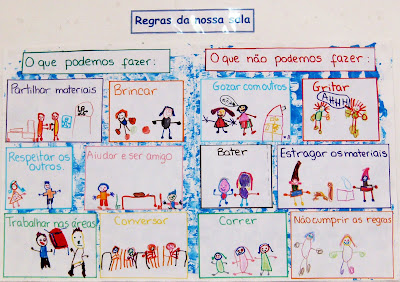 Regras da nossa sala
O que podemos fazer:
O que não podemos fazer:
Partilhar materiais
Brincar
Gozar com outros
Gritar
AHHH
Respeitar os
outros.
Ajudar e ser amigo
Bater
Estragar os materiais
Trabalhar nas áreas
Conversar
Correr
Não cumprir as regras